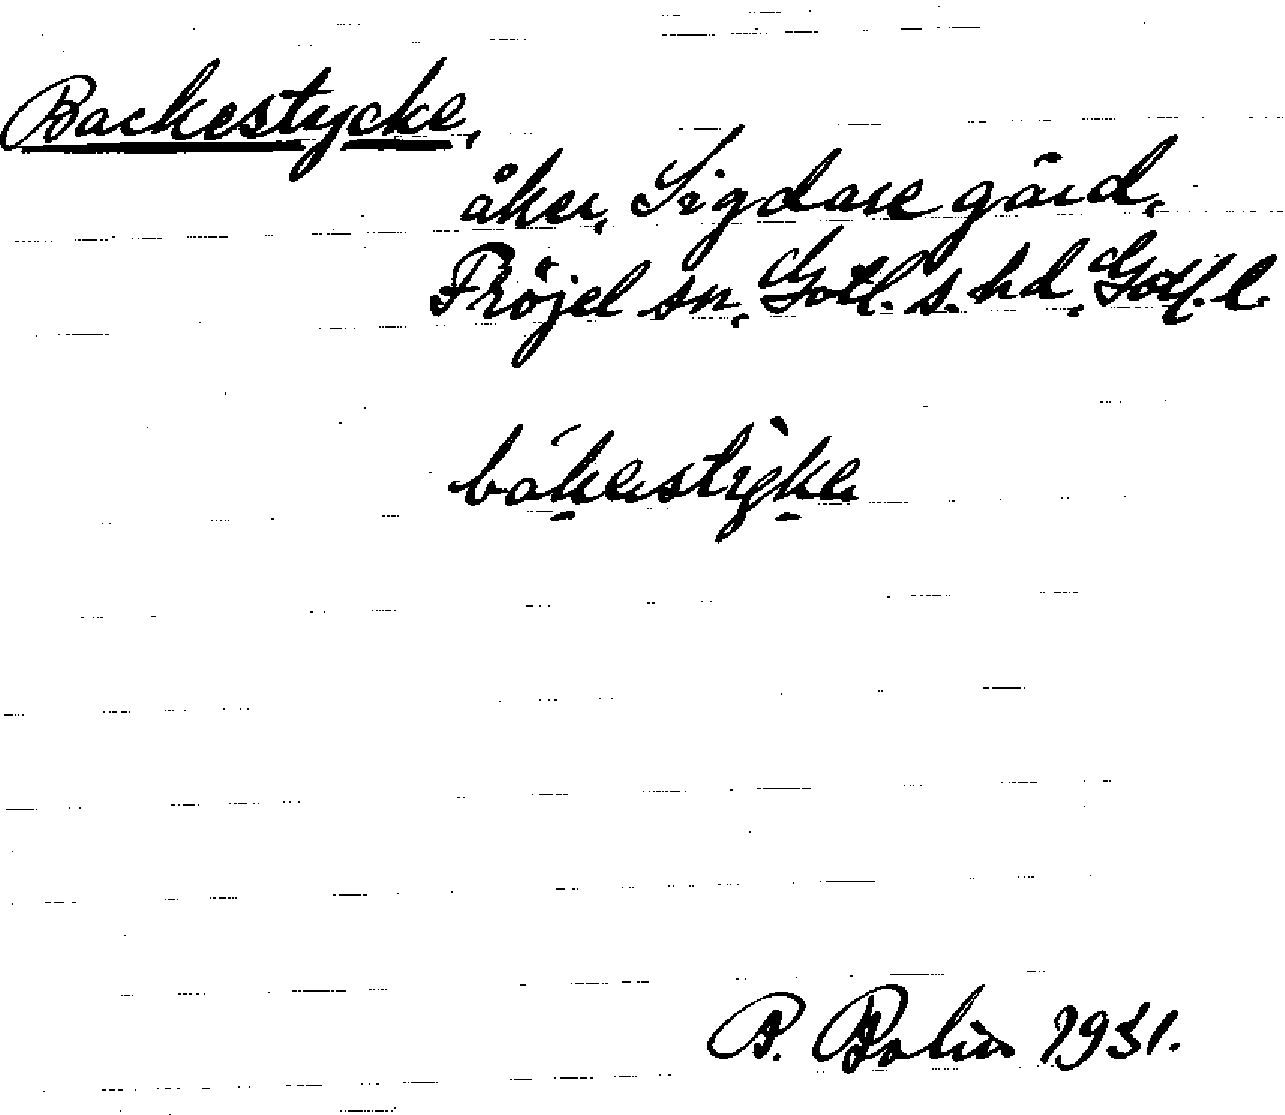 Backestycke,
åker, Sigdare gård,
Fröjel sn, Gotl. s. hd, Gotl. l.
bákestỳke
B. Bolin 1931.